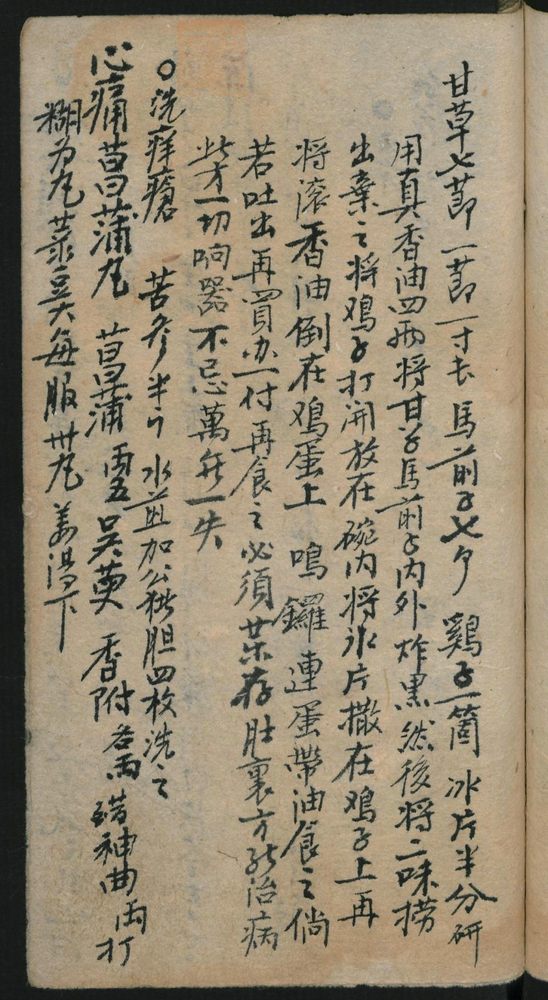 甘草七節一節一寸长馬前子七个鷄子一箇冰片半分研
用真香油四两将甘草馬前子内外炸黑然後将二味捞
出棄之将鸡子打開放在碗内将冰片撒在鸡子上再
将滚香油倒在鸡蛋上鳴鑼連蛋帶油食之倘
若吐出再買办一付再食之必須药存肚裏方能治病
此方一切响器不忌萬無一失
○洗痒瘡 苦参半斤水煎加公猪胆四枚洗之
心痛菖蒲丸 菖蒲 灵 吴萸 香附各两 神曲两打
糊为丸菉豆大每服卅丸姜湯下